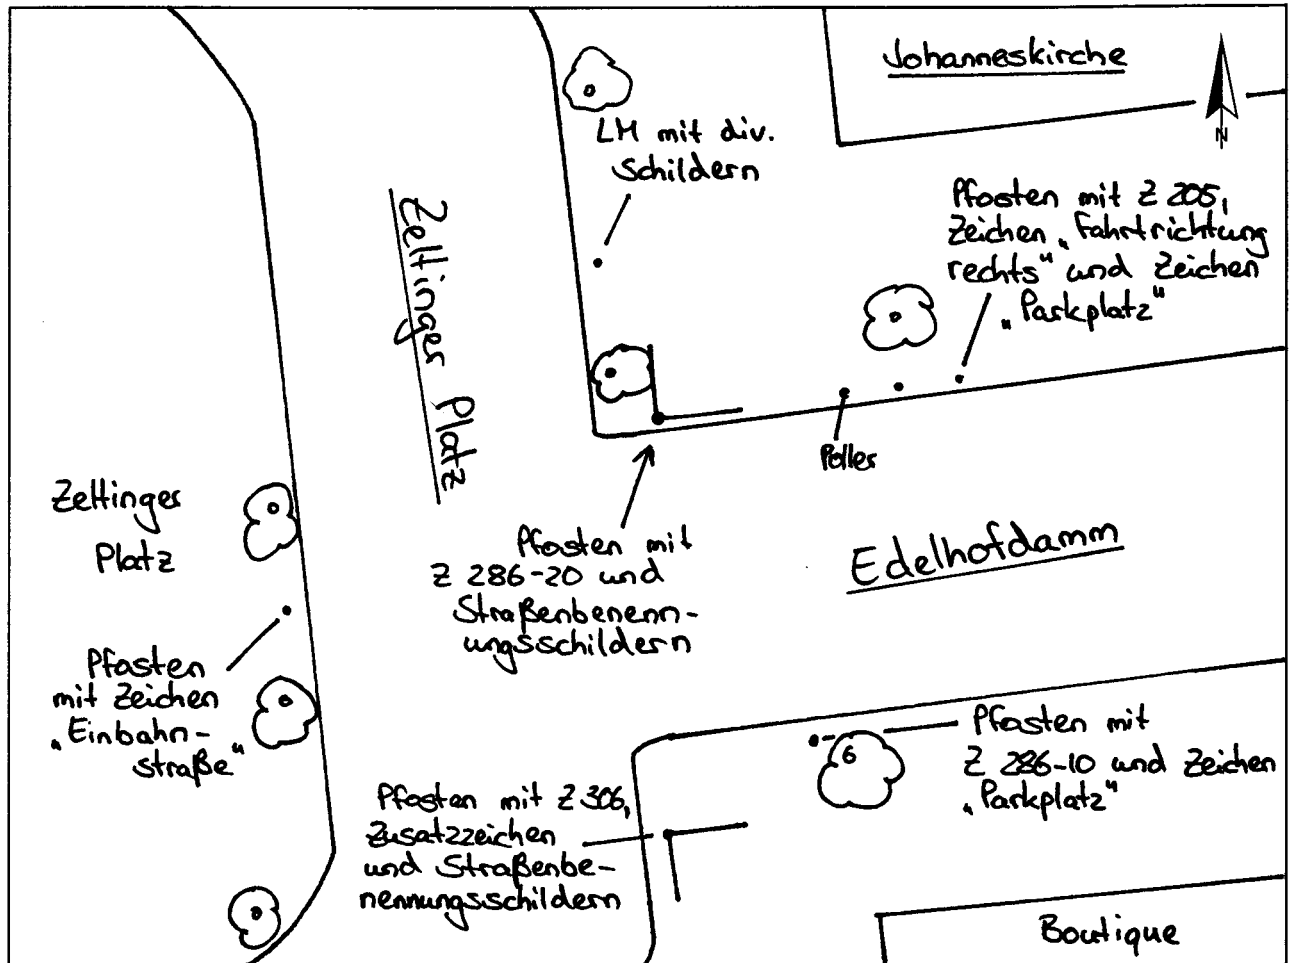 Johanneskirche
N
LM mit div.
Schildern
Pfosten mit Z 205,
Zeichen „Fahrtrichtung
rechts“ und Zeichen
„Parkplatz“
Zeltinger Platz
Poller
Zeltinger
Platz
Pfosten mit
Z 286-20 und
Straßenbenenn-
ungsschildern
Edelhofdamm
Pfosten
mit Zeichen
„Einbahn-
straße“
Pfosten mit
Z 286-10 und Zeichen
„Parkplatz“
6
Pfosten mit Z 306,
Zusatzzeichen
und Straßenbe-
nennungsschildern
Boutique